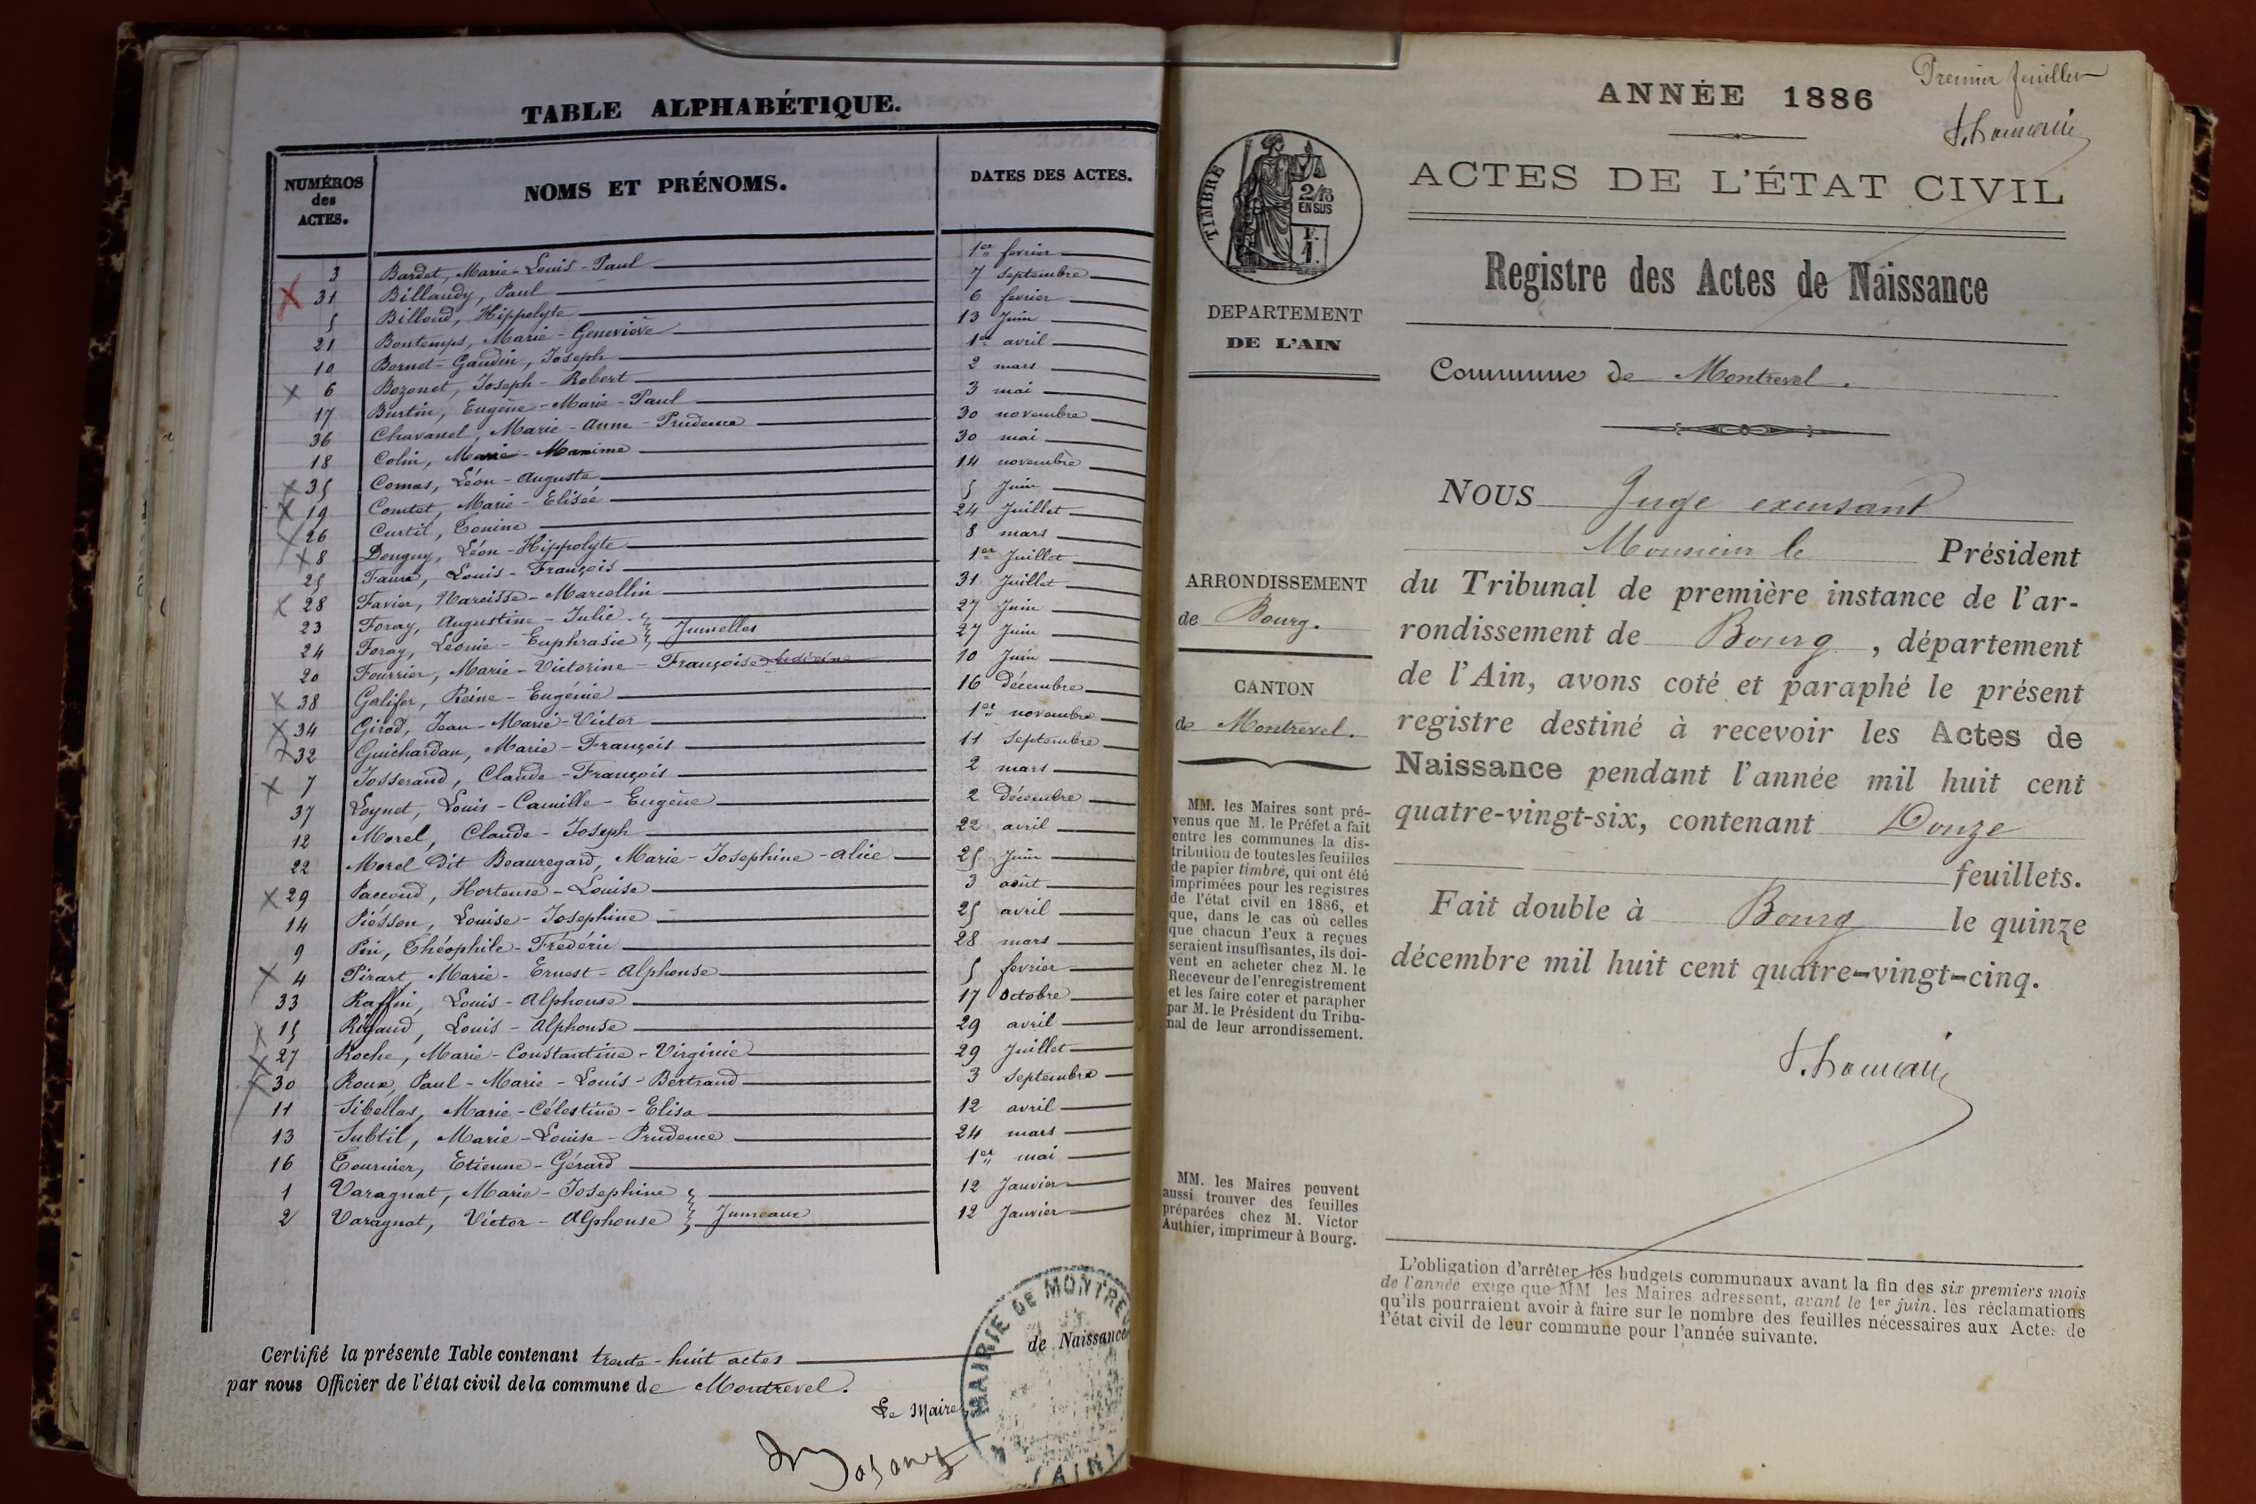 TABLE ALPHABÉTIQUE.
NUMÉROS des ACTES. NOMS ET PRÉNOMS. DATES DES ACTES.
3 Bardet, Marie-Louis-Paul 1er fevrier
31 Billaudy, Paul 7 septembre
5 Billoud, Hippolyte 6 fevrier
21 Bontemps, Marie-Geneviève 13 Juin
10 Bornet-Gaudin, Joseph 1er avril
6 Bozonet, Joseph-Robert 2 mars
17 Burtin, Eugène-Marie-Paul 3 mai
36 Chavanel, Marie-Anne-Prudence 30 novembre
18 Colin, Marie-Maxime 30 mai
35 Comas, Léon-Auguste 14 novembre
19 Comtet, Marie-Elisée 5 Juin
26 Curtil, Tonine 24 Juillet
8 Donguy, Léon-Hippolyte 8 mars
25 Faure, Louis-François 1er Juillet
28 Favier, Narcisse-Marcellin 31 Juillet
23 Foray, Augustine-Julie 27 Juin
24 Foray, Léonie-Euphrasie Jumelles 27 Juin
20 Fourrier, Marie-Victorine-Françoise 10 Juin
38 Galifer, Reine-Eugénie 16 décembre
34 Girod, Jean-Marie-Victor 1er novembre
32 Guichardan, Marie-François 11 septembre
7 Josserand, Claude-François 2 mars
37 Loynet, Louis-Camille-Eugène 2 décembre
12 Morel, Claude-Joseph 22 avril
22 Morel dit Beauregard, Marie-Josephine-Alice 25 Juin
29 Paccoud, Hortense-Louise 3 août
14 Piésson, Louise-Josephine 25 avril
9 Pin, Théophile-Frédéric 28 mars
4 Pirart, Marie-Ernest-Alphonse 5 fevrier
33 Raffin, Louis-Alphonse 17 Octobre
15 Rigaud, Louis-Alphonse 29 avril
27 Roche, Marie-Constantine-Virginie 29 Juillet
30 Roux, Paul-Marie-Louis-Bertrand 3 septembre
11 Sibellas, Marie-Célestine-Elisa 12 avril
13 Subtil, Marie-Louise-Prudence 24 mars
16 Tournier, Etienne-Gérard 1er mai
1 Varagnat, Marie-Josephine 12 Janvier
2 Varagnat, Victor-Alphonse Jumeaux 12 Janvier
Certifié la présente Table contenant trente-huit actes de Naissance
par nous Officier de l'état civil de la commune de Montrevel.
Le Maire
MAIRIE DE MONTREV
(AIN)
Premier feuillet
ANNÉE 1886
TIMBRE
2/10
EN SUS
ACTES DE L'ÉTAT CIVIL
Registre des Actes de Naissance
DEPARTEMENT
DE L'AIN
Commune de Montrevel.
NOUS Juge excusant
Monsieur le Président
du Tribunal de première instance de l'ar-
rondissement de Bourg, département
de l'Ain, avons coté et paraphé le présent
registre destiné à recevoir les Actes de
Naissance pendant l'année mil huit cent
quatre-vingt-six, contenant Douze
feuillets.
Fait double à Bourg le quinze
décembre mil huit cent quatre-vingt-cinq.
ARRONDISSEMENT
de Bourg.
CANTON
de Montrevel.
MM. les Maires sont pré-
venus que M. le Préfet a fait
entre les communes la dis-
tribution de toutes les feuilles
de papier timbré, qui ont été
imprimées pour les registres
de l'état civil en 1886, et
que, dans le cas où celles
que chacun d'eux a reçues
seraient insuffisantes, ils doi-
vent en acheter chez M. le
Receveur de l'enregistrement
et les faire coter et parapher
par M. le Président du Tribu-
nal de leur arrondissement.
MM. les Maires peuvent
aussi trouver des feuilles
préparées chez M. Victor
Authier, imprimeur à Bourg.
L'obligation d'arrêter les budgets communaux avant la fin des six premiers mois
de l'année exige que MM les Maires adressent, avant le 1er juin, les réclamations
qu'ils pourraient avoir à faire sur le nombre des feuilles nécessaires aux Actes de
l'état civil de leur commune pour l'année suivante.